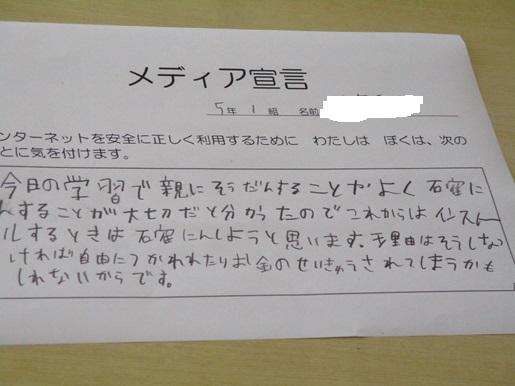 メディア宣言
5年 1組 名前
ンターネットを安全に正しく利用するために わたしは ぼくは、次の
とに気を付けます。
今日の学習で親にそうだんすることやよく確に
んすることが大切だと分かったのでこれからはインストー
ルするときは確にんしようと思います。理由はそうしな
ければ自由につかわれたりお金のせいきゅうされてしまうかも
しれないからです。